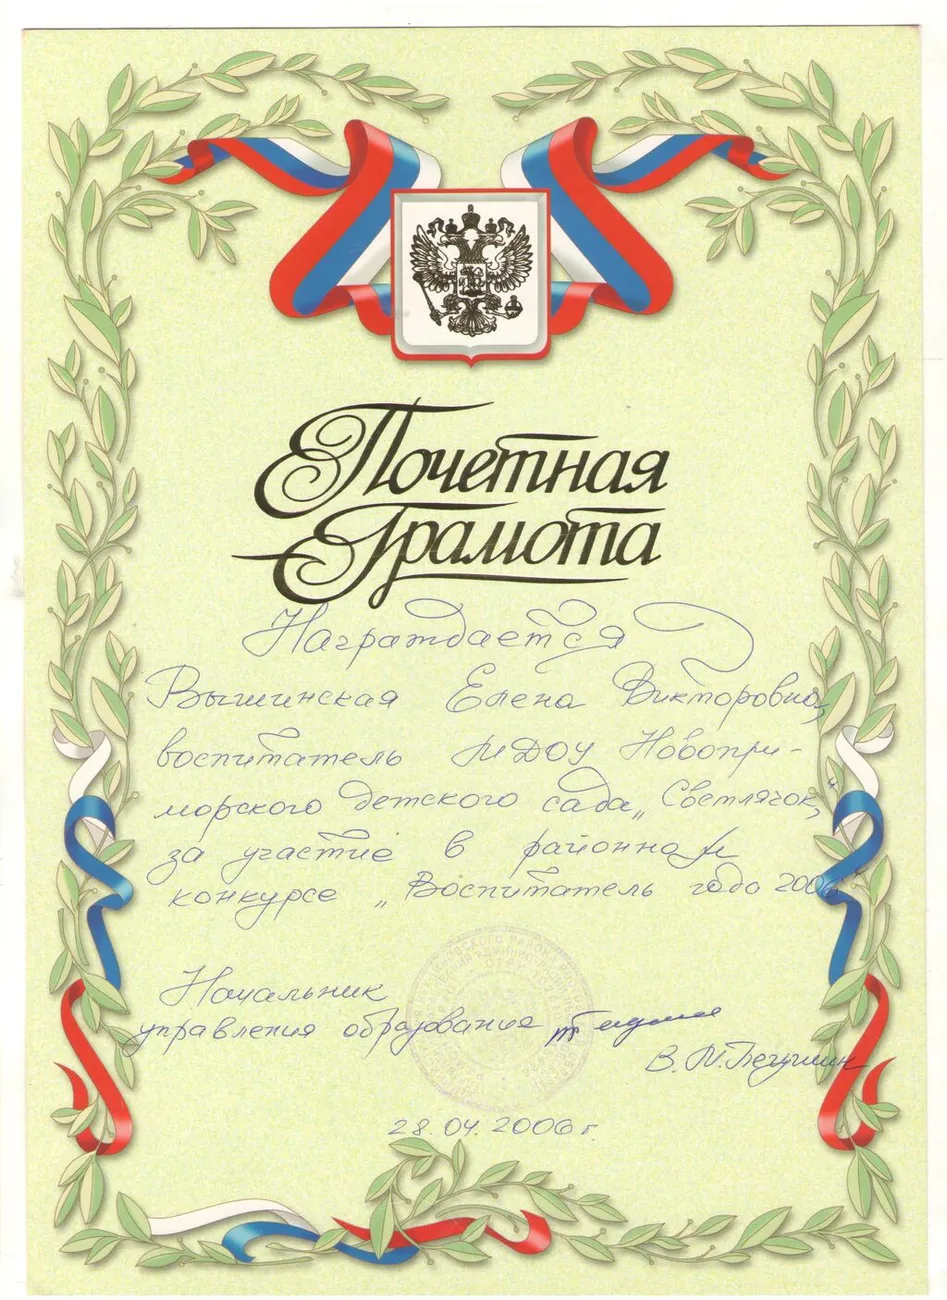 Почетная
Грамота
Награждается
Вышинская Елена Викторовна,
воспитатель МДОУ Новопри-
морского детского сада „Светлячок“,
за участие в районном
конкурсе „Воспитатель года 2006“
Начальник
управления образования
В. М. Пегушин
28.04.2006 г.